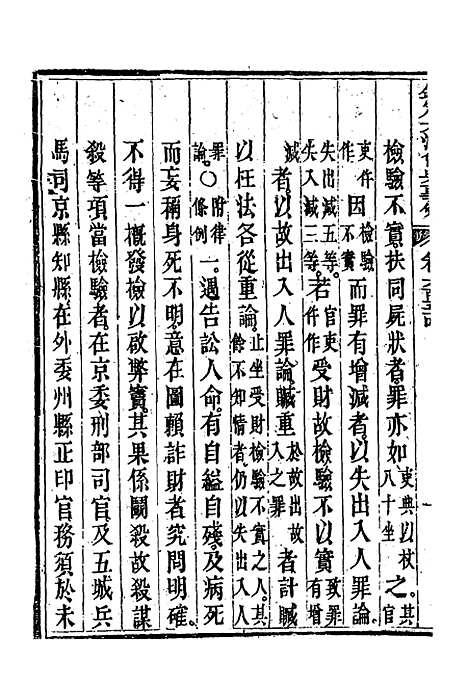 檢驗不實扶同屍狀者罪亦如吏典以杖八十坐之。其官
吏仵作因檢驗不實而罪有增減者。以失出入人罪論。
失出減五等。失入減三等。若官吏仵作受財故檢驗不以實致罪有增
減者。以故出入人罪論。贓重於故出故入之罪者計贓
以枉法各從重論。止坐受財檢驗不實之人。其餘不知情者。仍以失出入人
罪論。○附律條例一。遇告訟人命。有自縊自殘。及病死
而妄稱身死不明。意在圖賴詐財者。究問明確。
不得一概發檢以啟弊竇。其果係鬬殺故殺謀
殺等項當檢驗者。在京委刑部司官。及五城兵
馬司京縣知縣。在外委州縣正印官。務須於未